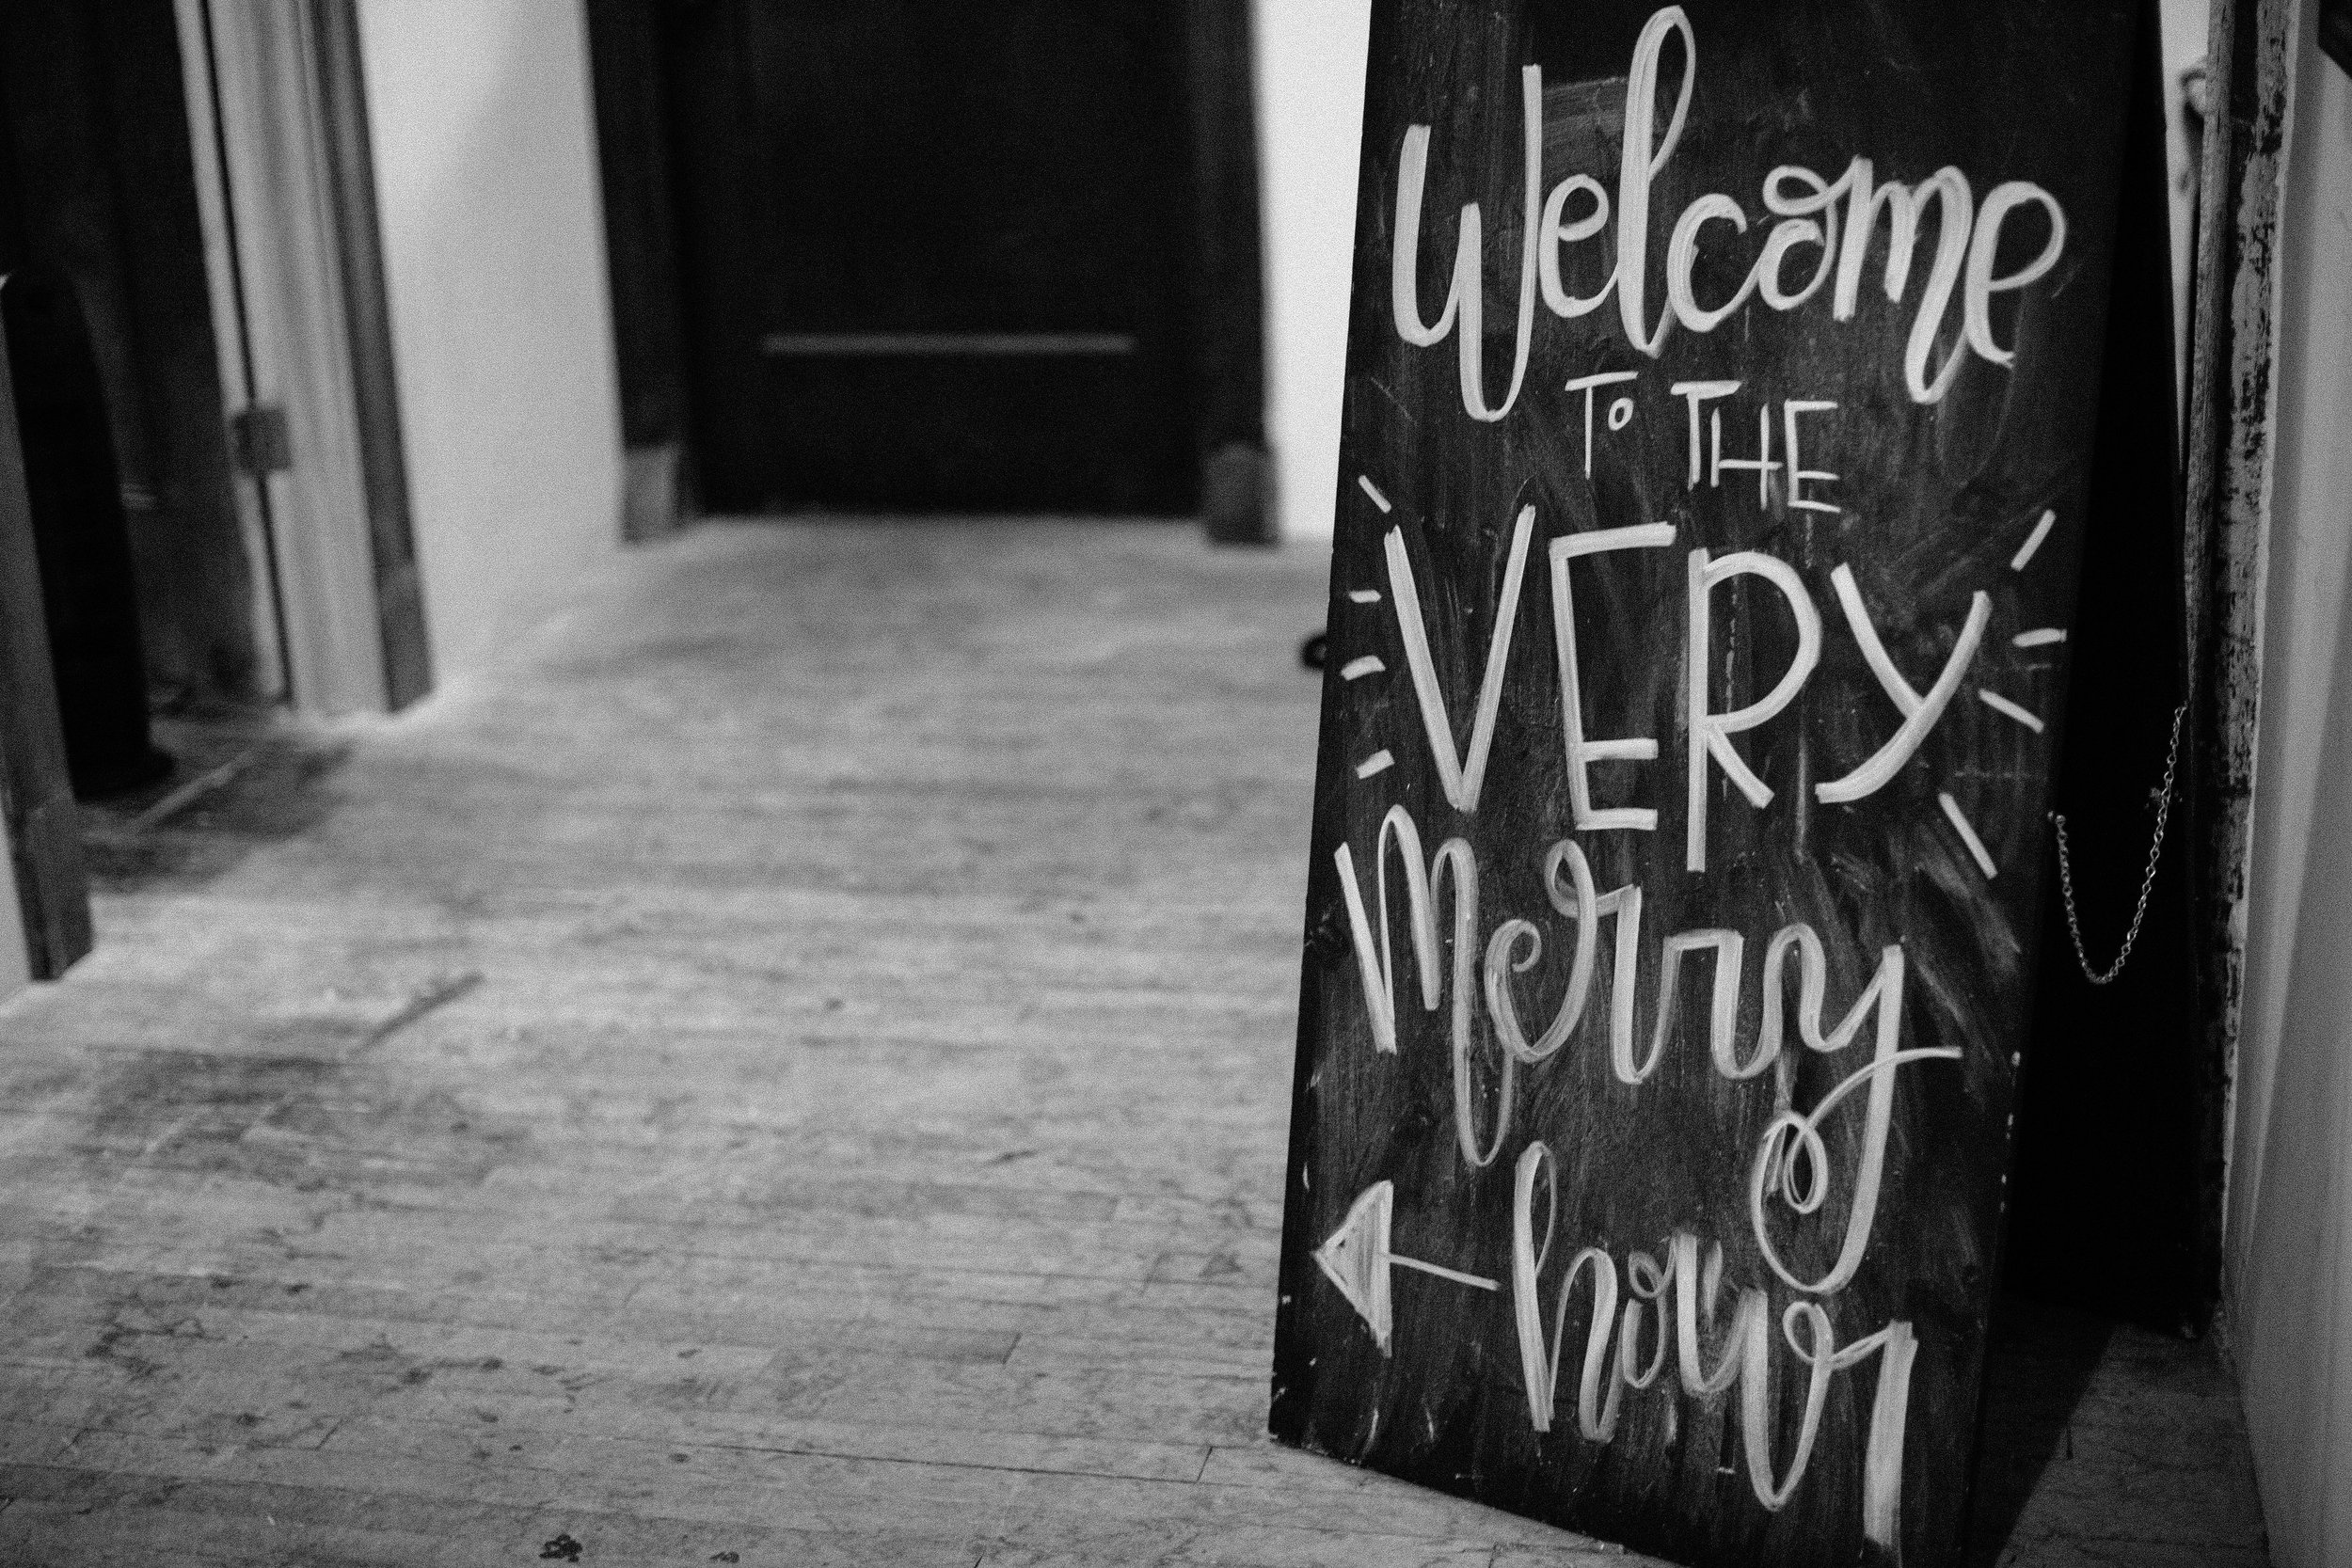 Welcome
To THE
VERY
Merry
hour